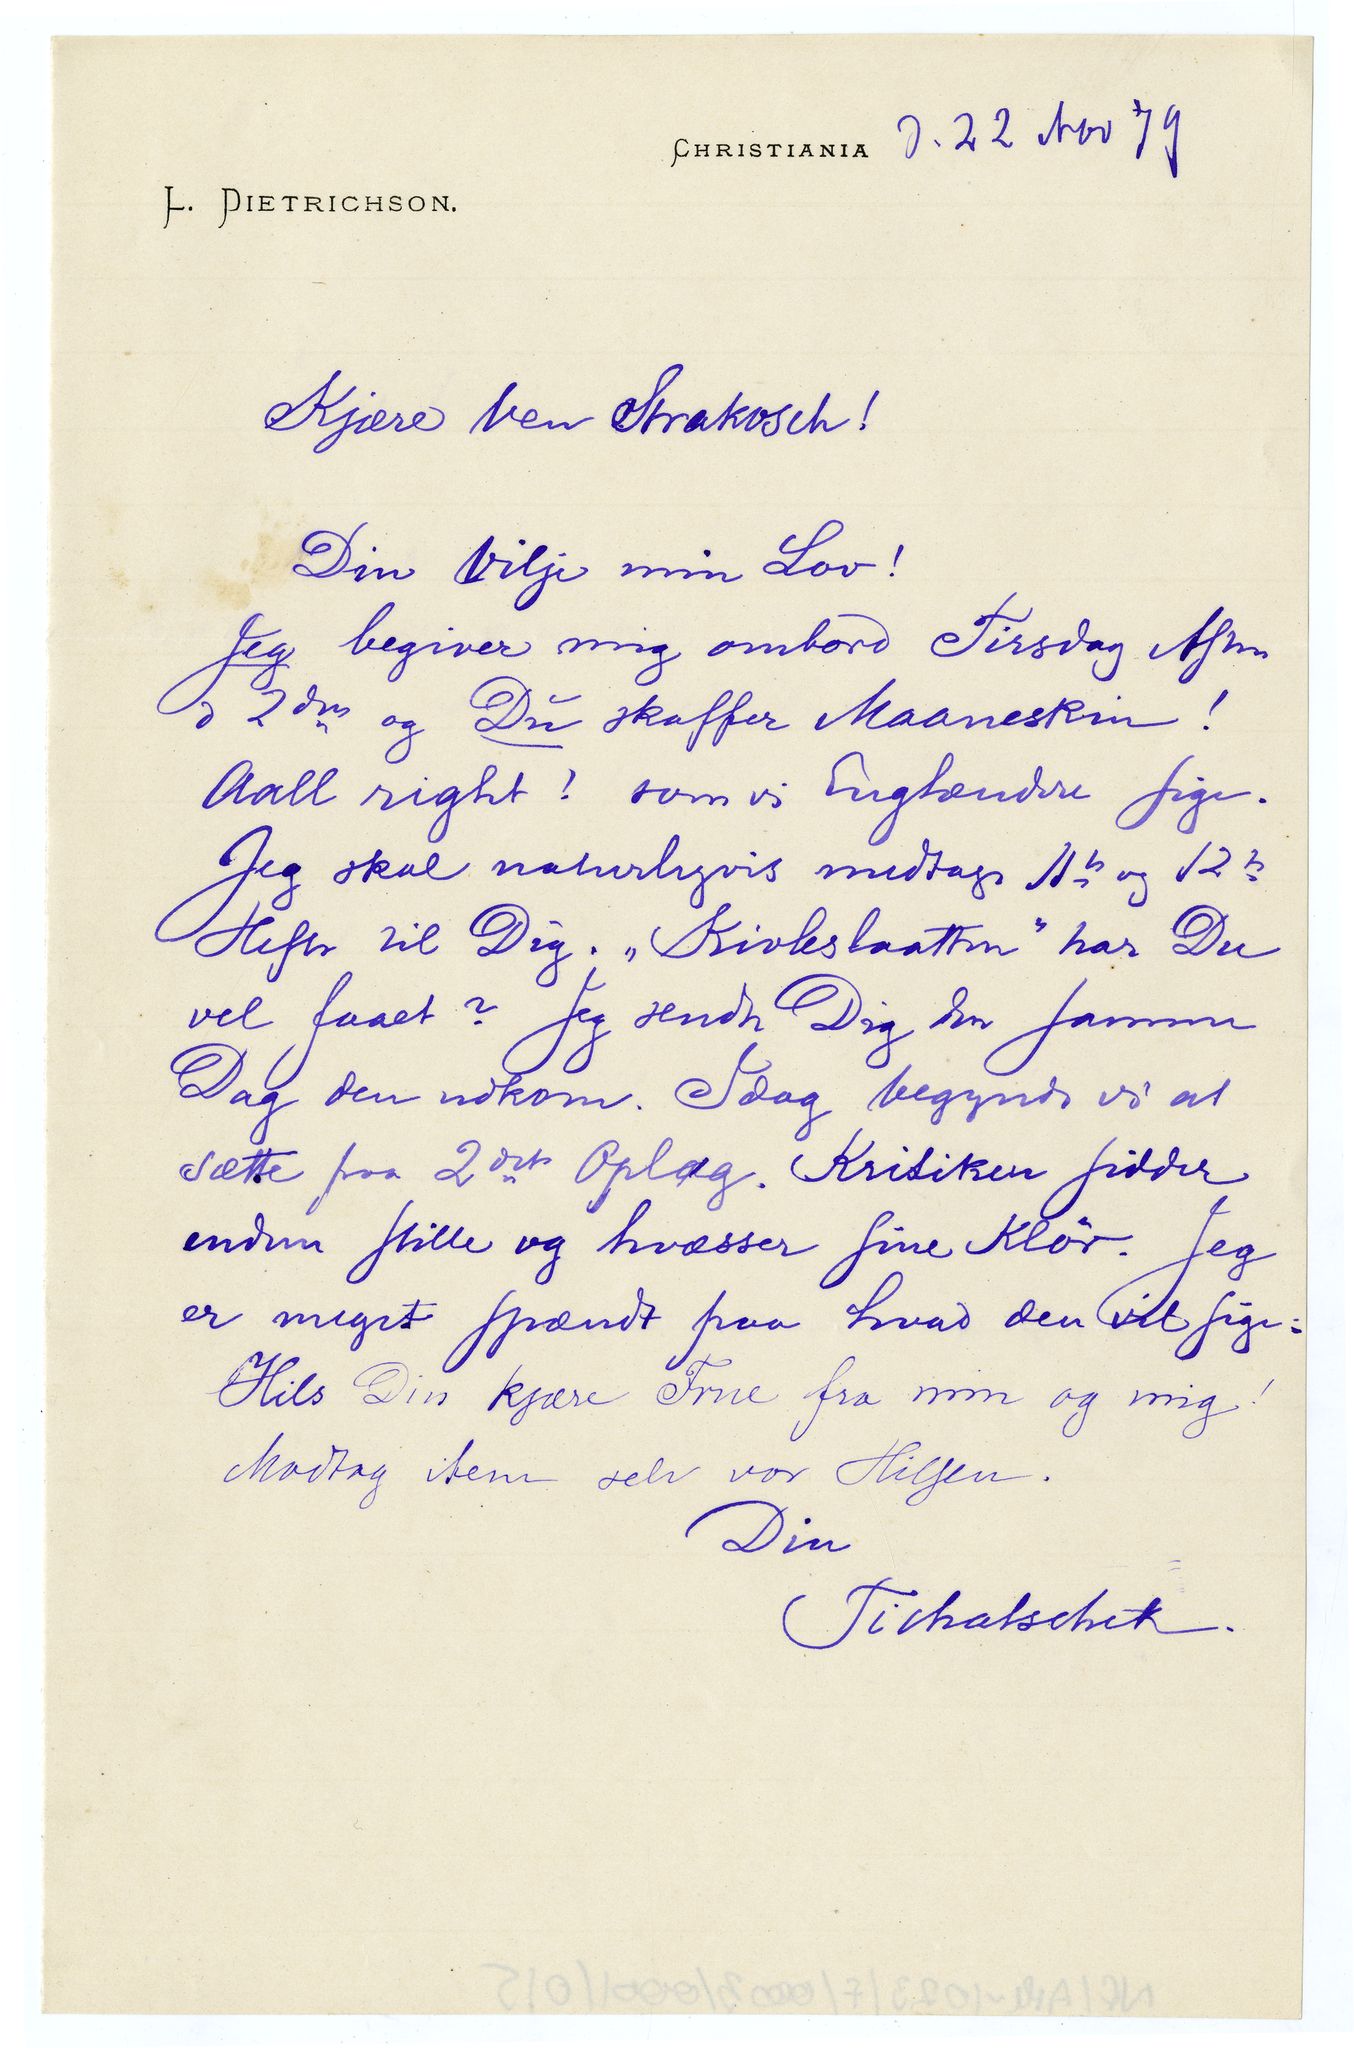 CHRISTIANIA d. 22 Nov 79
L. DIETRICHSON.
Kjære Ven Strakosch!
Din Vilje min Lov!
Jeg begiver mig ombord Tirsdag Aften
d 2den og Du skaffer Maaneskin!
Aall right! som vi Englændere sige.
Jeg skal naturligvis medtage 11te og 12te
Hefte til Dig. „Kivleslaatten" har Du
vel faaet? Jeg sendte Dig den samme
Dag den udkom. Idag begynde vi at
sætte paa 2det Oplag. Kritiken sidder
endnu stille og hvæsser sine Klör. Jeg
er meget spændt paa hvad den vil sige.
Hils Din kjære Frue fra min og mig!
Modtag selv vor Hilsen.
Din
Tichatscheck.
NB/Ark-1023/F/0003/0001/015